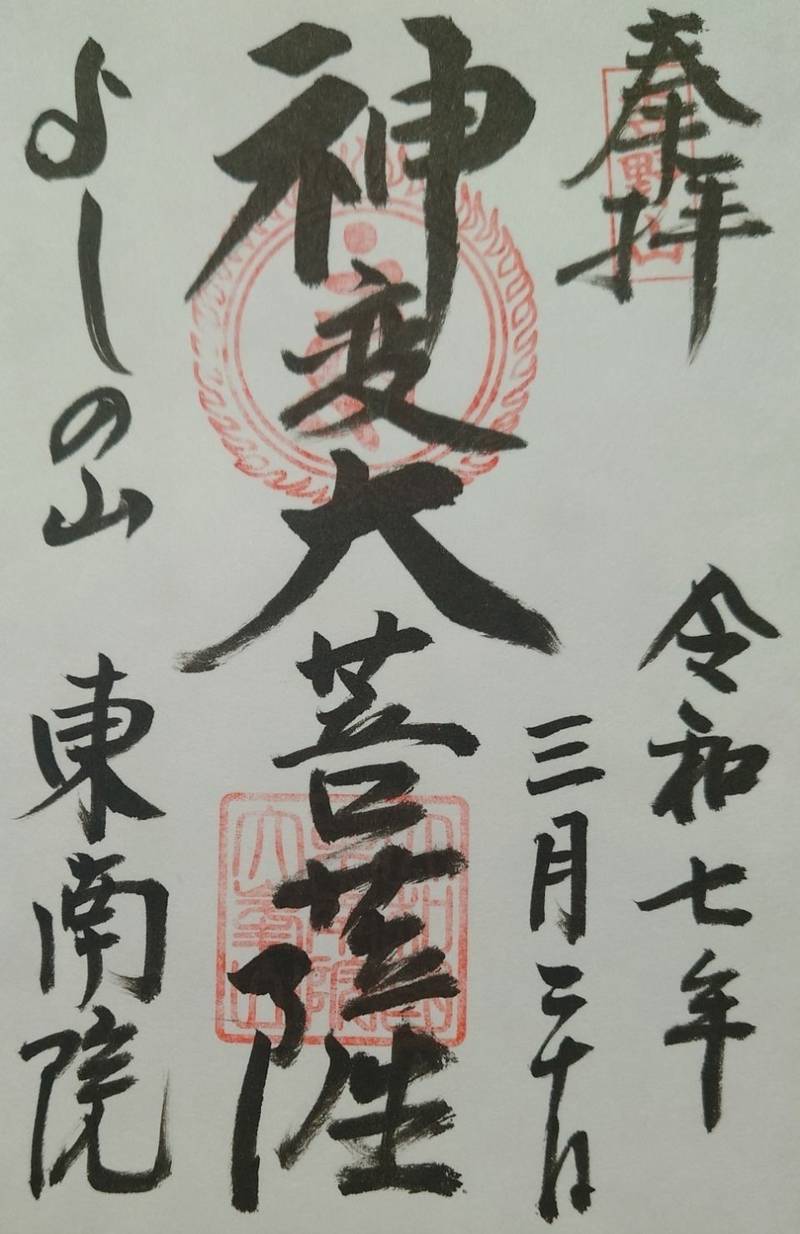 奉拝
令和七年
三月二十日
神変大菩薩
よしの山
東南院